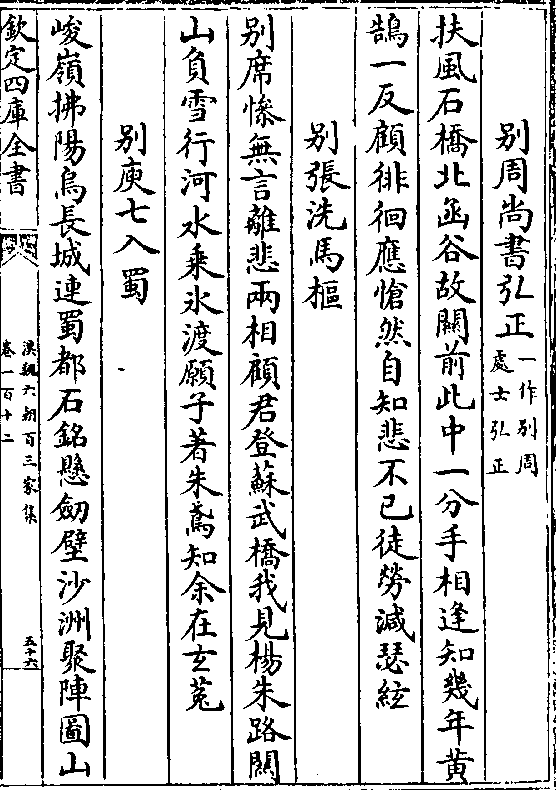 別周尚書弘正一作別周處士弘正
扶風石橋北函谷故關前此中一分手相逢知幾年黄
鵠一反顧徘徊應愴然自知悲不已徒勞減瑟絃
別張洗馬樞
別席慘無言離悲兩相顧君登蘇武橋我見楊朱路關
山負雪行河水乗氷渡願子著朱鳶知余在玄菟
別庾七入蜀
峻嶺拂陽烏長城連蜀都石銘懸劒壁沙洲聚陣圖山
欽定四庫全書
漢魏六朝百三家集
卷一百十二
五十六